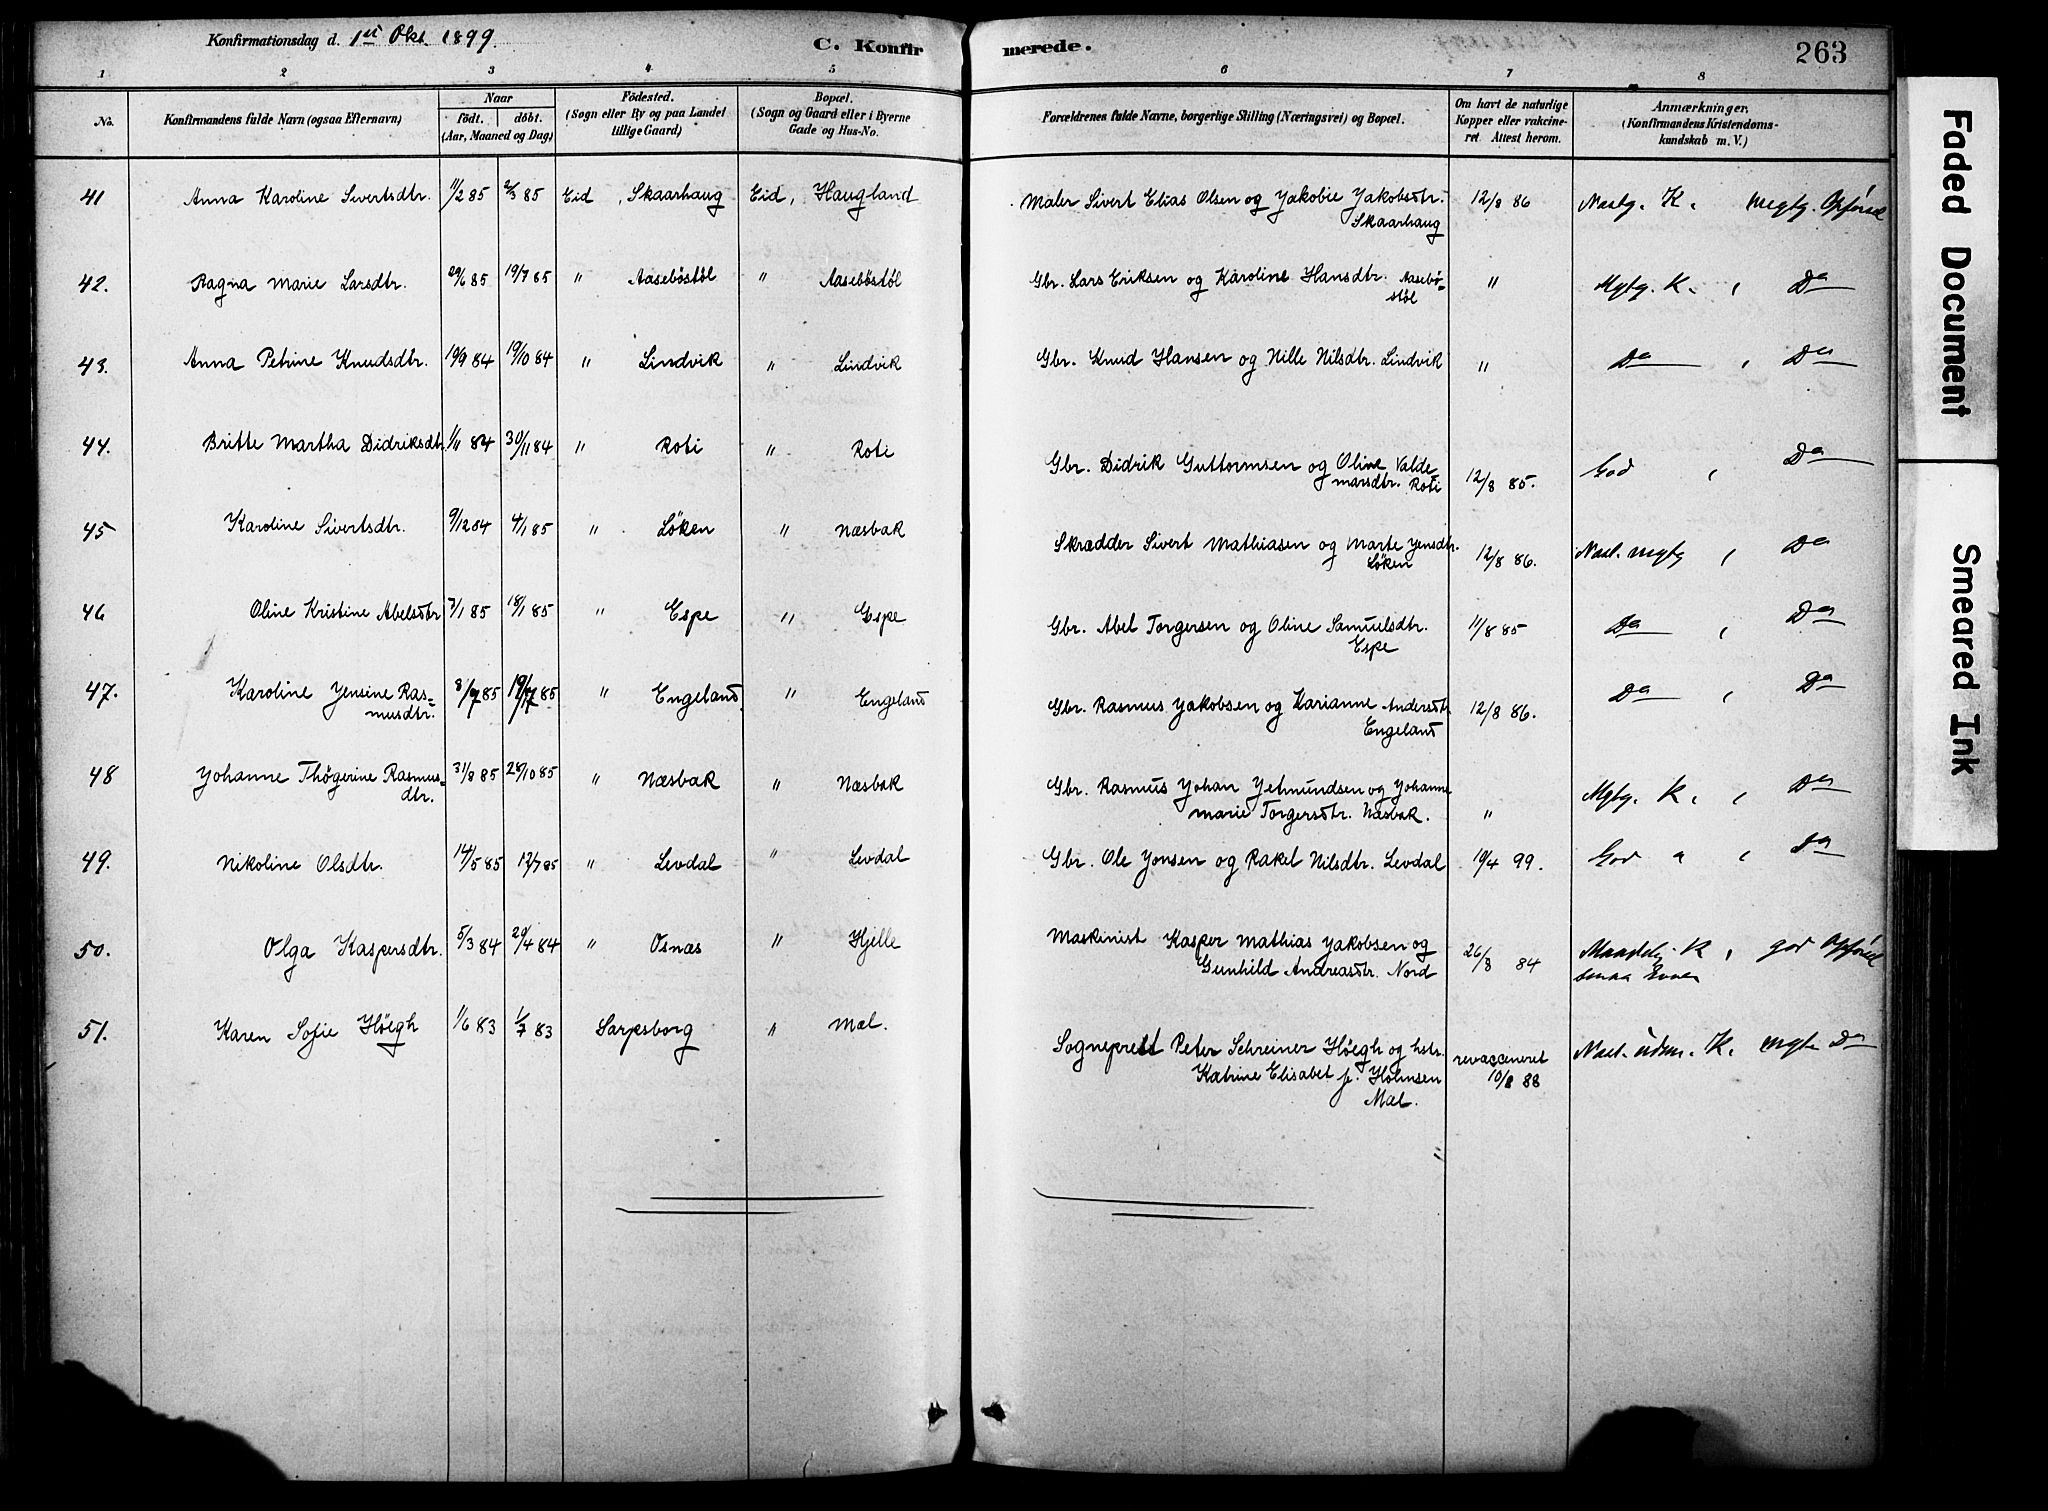 Konfirmationsdag d. 1ste Okt. 1899.
C. Konfirmerede.
263
1 2 3 4 5 6 7 8
No.
Konfirmandens fulde Navn (ogsaa Efternavn)
Naar
födt. döbt.
(Aar, Maaned og Dag)
Födested.
(Sogn eller By og paa Landet
tillige Gaard)
Bopæl.
(Sogn og Gaard eller i Byerne
Gade og Hus-No.
Forældrenes fulde Navne, borgerlige Stilling (Næringsvei) og Bopæl.
Om havt de naturlige
Kopper eller vakcine-
ret. Attest herom.
Anmærkninger.
(Konfirmandens Kristendoms-
kundskab m. V.)
41 Anna Karoline Sivertsdtr. 11/2 85 2/3 85 Eid, Skaarhaug Eid, Haugland Maler Sivert Elias Olsen og Jakobie Jakobsdtr. 12/8 86 K. Opförsel
Skaarhaug
42. Ragna Marie Larsdtr. 29/6 85 19/7 85 " Aaseböstöl " Aaseböstöl Gbr. Lars Eriksen og Karoline Hansdtr. Aasebö- " Mgtg. K. , Do
stöl
43. Anna Petrine Knudsdtr. 19/9 84 19/10 84 " Lindvik " Lindvik Gbr. Knud Hansen og Nille Nilsdtr. Lindvik " Do , Do
44. Britte Martha Didriksdtr. 1/11 84 30/11 84 " Roti " Roti Gbr. Didrik Guttormsen og Oline Valde- 12/8 85. God , Do
marsdtr. Roti
45 Karoline Sivertsdtr. 9/12 84 4/1 85 " Löken " Næsbak Skrædder Sivert Mathiasen og Marte Jensdtr. 12/8 86. Næst. mgtg , Do
Löken
46 Oline Kristine Abelsdtr 7/1 85 18/1 85 " Espe " Espe Gbr. Abel Torgersen og Oline Samuelsdtr. 11/8 85 Do , Do
Espe
47. Karoline Jensine Ras- 8/7 85 19/7 85 " Engeland " Engeland Gbr. Rasmus Jakobsen og Karianne Andersdtr. 12/8 86. Do , Do
musdtr. Engeland
48 Johanne Thögerine Rasmus- 31/8 85 28/10 85 " Næsbak " Næsbak Gbr. Rasmus Johan Jetmundsen og Johanne " Mgtg. K. , Do
dtr. Marie Torgersdtr. Næsbak.
49. Nikoline Olsdtr. 14/5 85 12/7 85 " Levdal " Levdal Gbr. Ole Jonsen og Rakel Nilsdtr. Levdal 19/4 99. God , Do
50. Olga Kaspersdtr. 5/3 84 20/4 84 " Osnæs " Hjelle Maskinist Kasper Mathias Jakobsen og 26/8 84 Maadelig K , god Opförsel
Gunhild Andreasdtr. Nord smaa Evner
51. Karen Sofie Höegh 1/6 83 1/7 83 Sarpsborg " Mæl. Sogneprest Peter Schreiner Höegh og hstr. revaccineret K. Do
Katrine Elisabet f. Holmsen 10/8 88
Mæl.
Faded Document
Smeared Ink